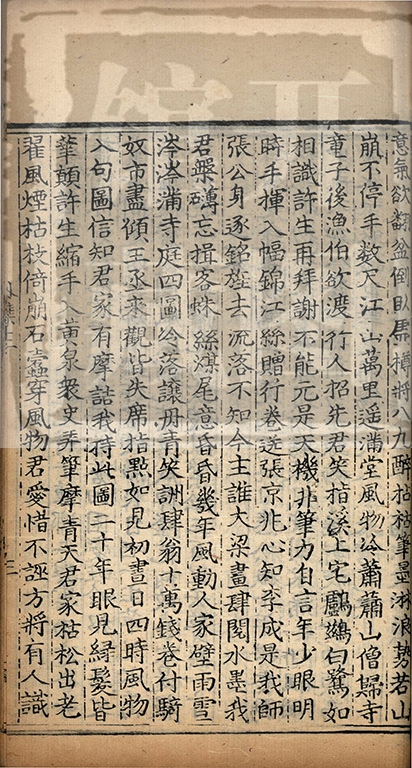 意氣欲翻盆倒臥馬樽將八九醉拈枯筆墨淋浪勢若山
崩不停手數尺江山萬里遥滿堂風物冷蕭蕭山僧歸寺
童子後漁伯欲渡行人招先君笑指溪上宅鸕鷀白鷺如
相識許生再拜謝不能元是天機非筆力自言年少眼明
時手揮八幅錦江絲贈行卷送張京兆心知李成是我師
張公身逐銘旌去流落不知今主誰大梁畫肆閱水墨我
君槃礴忘揖客蛛絲煤尾意昏昏幾年風動人家壁雨雪
涔涔滿寺庭四圖冷落讓丹青笑詶肆翁十萬錢卷付騎
奴市盡傾王丞來觀皆失席指點如見初畫日四時風物
入句圖信知君家有摩詰我持此圖二十年眼見緑髮皆
華顛許生縮手入黃泉衆史弄筆摩青天君家枯松出老
翟風煙枯枝倚崩石蠹穿風物君愛惜不誣方將有人識